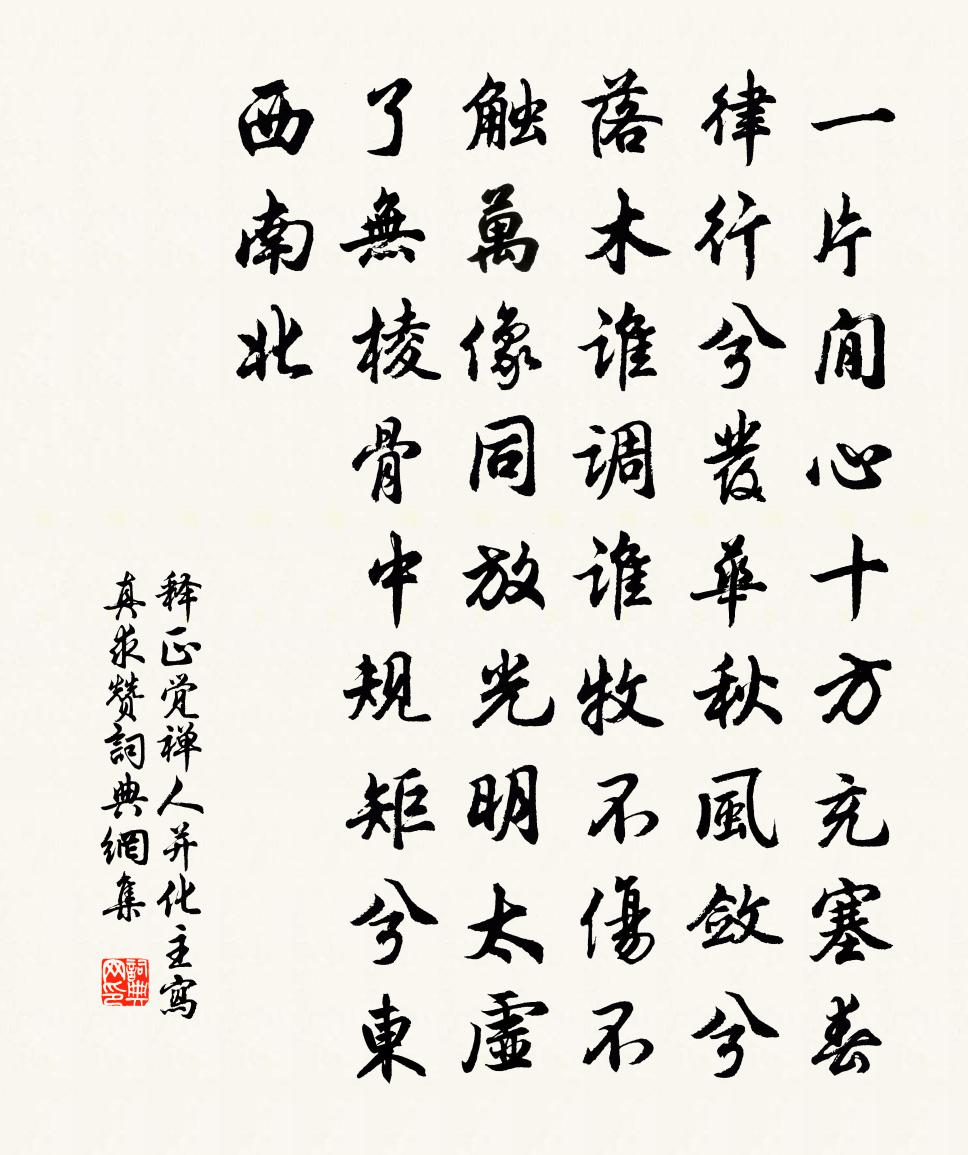 一片閒心十方充塞春
律行兮叢華秋風斂兮
落木谁调谁牧不傷不
触萬像同放光明太虛
了無棱骨中規矩兮東
西南北
释正觉禅人并化主寫
真求赞詞典網集
詞典網印